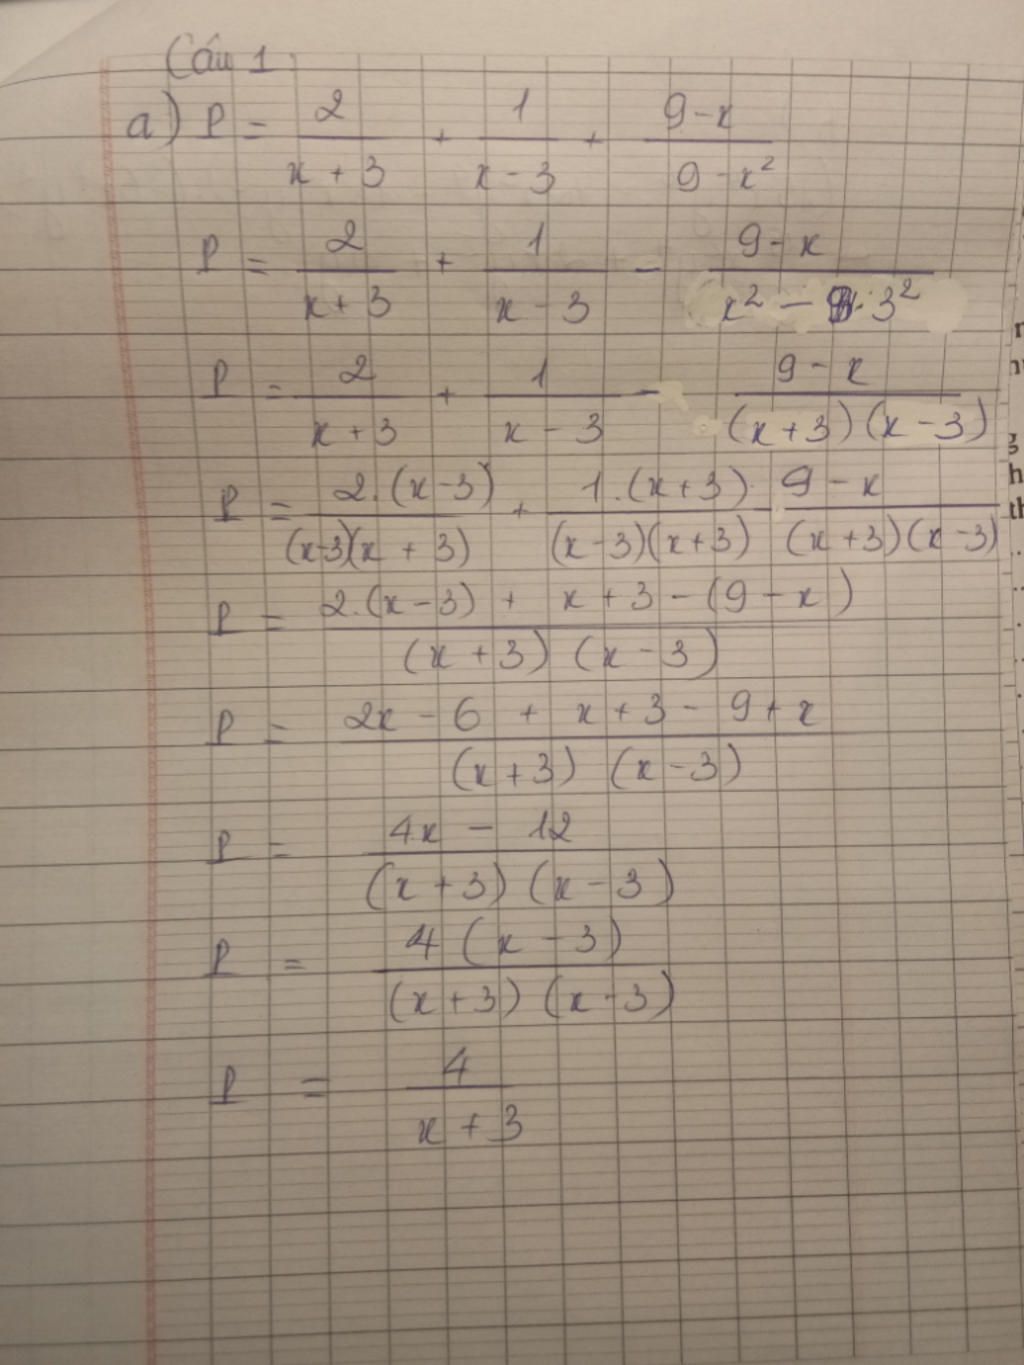 Câu 1:
a) P = 2/(x + 3) + 1/(x - 3) + (9 - x)/(9 - x²)
P = 2/(x + 3) + 1/(x - 3) - (9 - x)/(x² - 3²)
P = 2/(x + 3) + 1/(x - 3) - (9 - x)/((x + 3)(x - 3))
P = 2.(x - 3)/((x - 3)(x + 3)) + 1.(x + 3)/((x - 3)(x + 3)) - (9 - x)/((x + 3)(x - 3))
P = (2.(x - 3) + x + 3 - (9 - x))/((x + 3)(x - 3))
P = (2x - 6 + x + 3 - 9 + x)/((x + 3)(x - 3))
P = (4x - 12)/((x + 3)(x - 3))
P = 4(x - 3)/((x + 3)(x - 3))
P = 4/(x + 3)